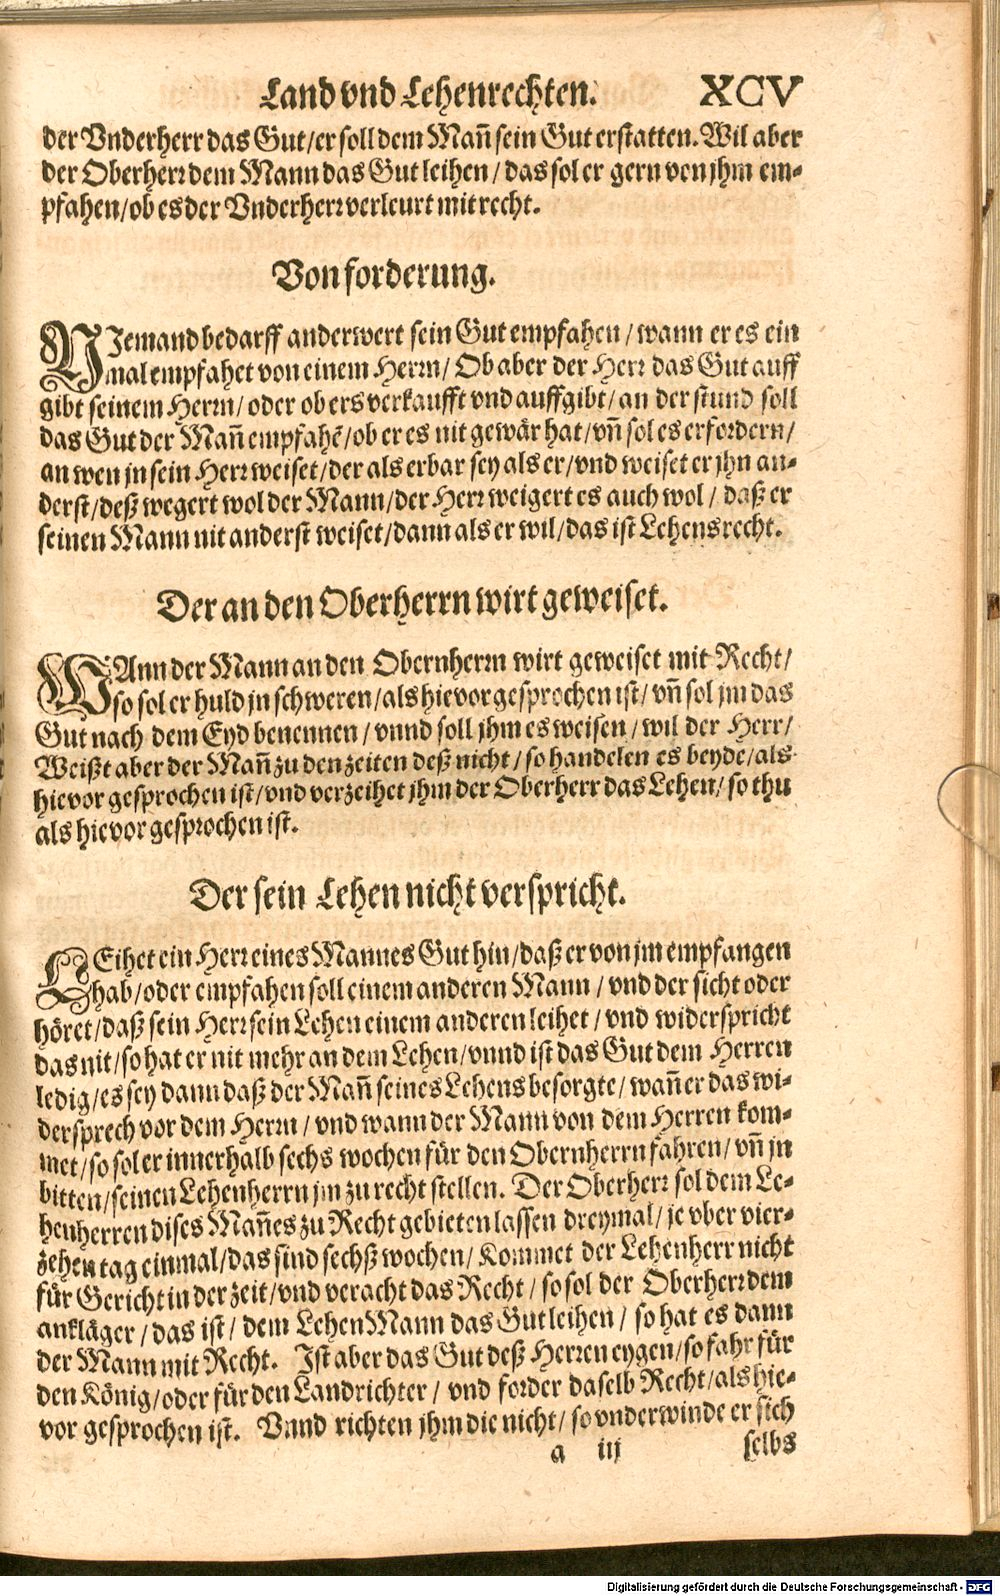 Land vnd Lehenrechten. XCV
der Vnderherr das Gut/er soll dem Mañ sein Gut erstatten. Wil aber
der Oberherr dem Mann das Gut leihen/ das sol er gern von jhm em-
pfahen/ob es der Vnderherr verleurt mit recht.
Von forderung.
NJemand bedarff anderwert sein Gut empfahen/wann er es ein
mal empfahet von einem Herrn/ Ob aber der Herr das Gut auff
gibt seinem Herrn/ oder ob ers verkaufft vnd auffgibt/an der stund soll
das Gut der Mañ empfahẽ/ob er es nit gewär hat/vñ sol es erfordern/
an wen jn sein Herr weiset/der als erbar sey als er/vnd weiset er jhn an-
derst/deß wegert wol der Mann/der Herr weigert es auch wol/ daß er
seinen Mann nit anderst weiset/dann als er wil/das ist Lehensrecht.
Der an den Oberherrn wirt geweiset.
WAnn der Mann an den Obernherrn wirt geweiset mit Recht/
so sol er huld jn schweren/als hievor gesprochen ist/vñ sol jm das
Gut nach dem Eyd benennen/ vnnd soll jhm es weisen/wil der Herr/
Weißt aber der Mañ zu den zeiten deß nicht/so handelen es beyde/als
hievor gesprochen ist/vnd verzeihet jhm der Oberherr das Lehen/ so thu
als hievor gesprochen ist.
Der sein Lehen nicht verspricht.
LEihet ein Herr eines Mannes Gut hin/daß er von jm empfangen
hab/oder empfahen soll einem anderen Mann/ vnd der sicht oder
höret/daß sein Herr sein Lehen einem anderen leihet/vnd widerspricht
das nit/so hat er nit mehr an dem Lehen/vnnd ist das Gut dem Herren
ledig/es sey dann daß der Mañ seines Lehens besorgte/wañ er das wi-
dersprech vor dem Herrn/ vnd wann der Mann von dem Herren kom-
met/so sol er innerhalb sechs wochen für den Obernherrn fahren/vñ jn
bitten/seinen Lehenherrn jm zu recht stellen. Der Oberherr sol dem Le-
henherren dises Mañes zu Recht gebieten lassen dreymal/je vber vier-
zehen tag einmal/das sind sechß wochen/ Kommet der Lehenherr nicht
für Gericht in der zeit/vnd veracht das Recht/ so sol der Oberherr dem
ankläger/das ist/ dem LehenMann das Gut leihen/ so hat es dann
der Mann mit Recht. Ist aber das Gut deß Herren eygen/so fahr für
den König/oder für den Landrichter/ vnd forder daselb Recht/als hie-
vor gesprochen ist. Vnnd richten jhm die nicht/ so vnderwinde er sich
a iij selbs
Digitalisierung gefördert durch die Deutsche Forschungsgemeinschaft - DFG